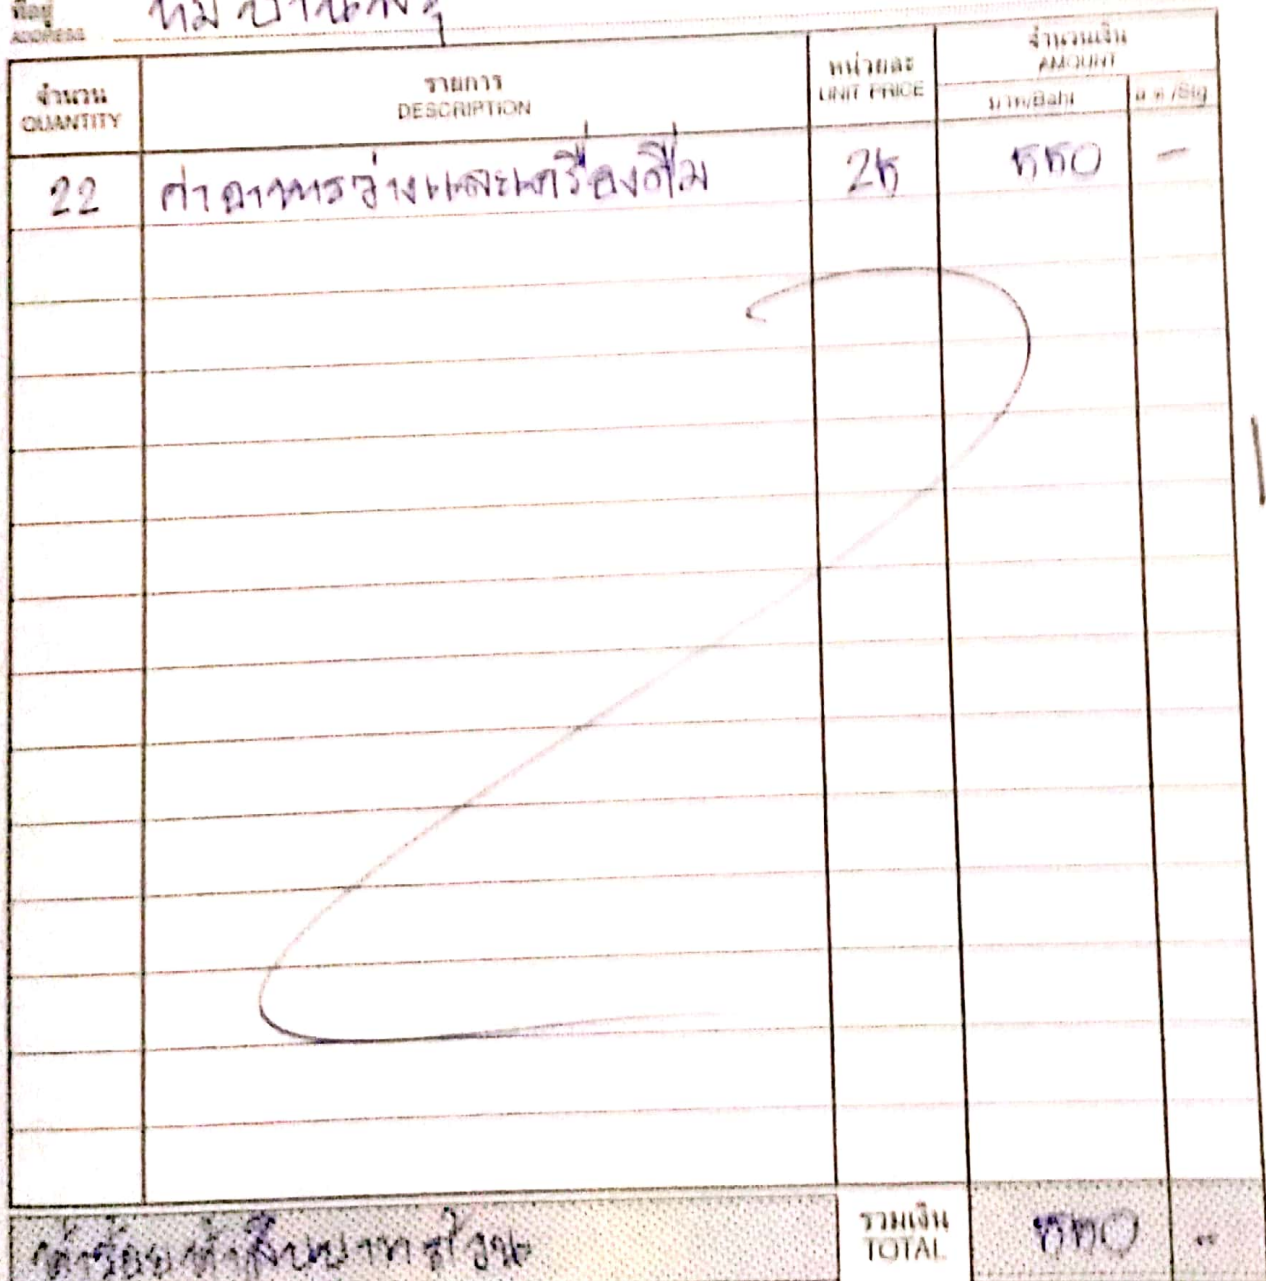 ที่อยู่
ADDRESS
จำนวน
QUANTITY
รายการ
DESCRIPTION
หน่วยละ
UNIT PRICE
จำนวนเงิน
AMOUNT
บาท/Baht
ส.ต./Stg
22 ค่าอาหารว่างและเครื่องดื่ม 25 550 -
ห้าร้อยห้าสิบบาทถ้วน
รวมเงิน
TOTAL
550 -